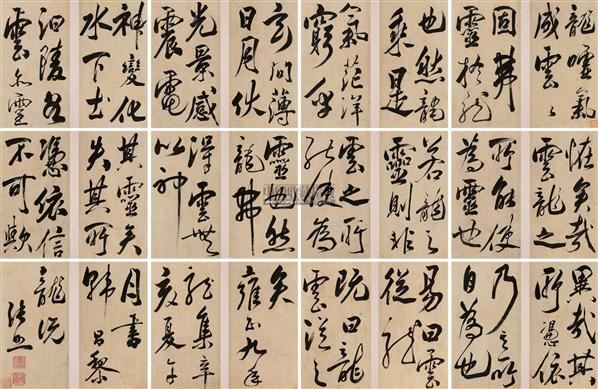 龍噓氣
成雲〻
固弗
靈於龍
也然龍
乘是
氣茫洋
窮乎
玄間薄
日月伏
光景感
震電
神變化
水下土
汩陵谷
雲亦靈
恠矣哉
雲龍之
所能使
為靈也
若龍之
靈則非
雲之所
能使為
靈也然
龍弗
得雲無
以神
其靈矣
失其所
憑依信
不可歟
異哉其
所憑依
乃其所
自為也
易曰雲
從龍
既曰龍
雲從之
矣
雍正九年
龍集辛
亥夏午
月書
韓昌黎
龍說
張照